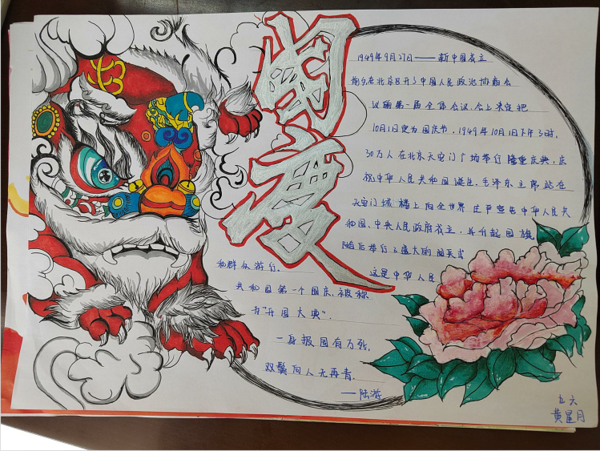 国庆
1949年9月21日——新中国成立
前夕在北京召开了中国人民政治协商会
议的第一届全体会议,会上决定把
10月1日定为国庆节,1949年10月1日下午3时,
30万人在北京天安门广场举行隆重庆典,庆
祝中华人民共和国诞生,毛泽东主席站在
天安门城楼上向全世界庄严宣告中华人民共
和国、中央人民政府成立,并升起国旗
随后举行了盛大的阅兵式
和群众游行, 这是中华人民
共和国第一个国庆,被称
为“开国大典”.
一身报国有万死,
双鬓向人无再青.
——陆游
五六
黄星月